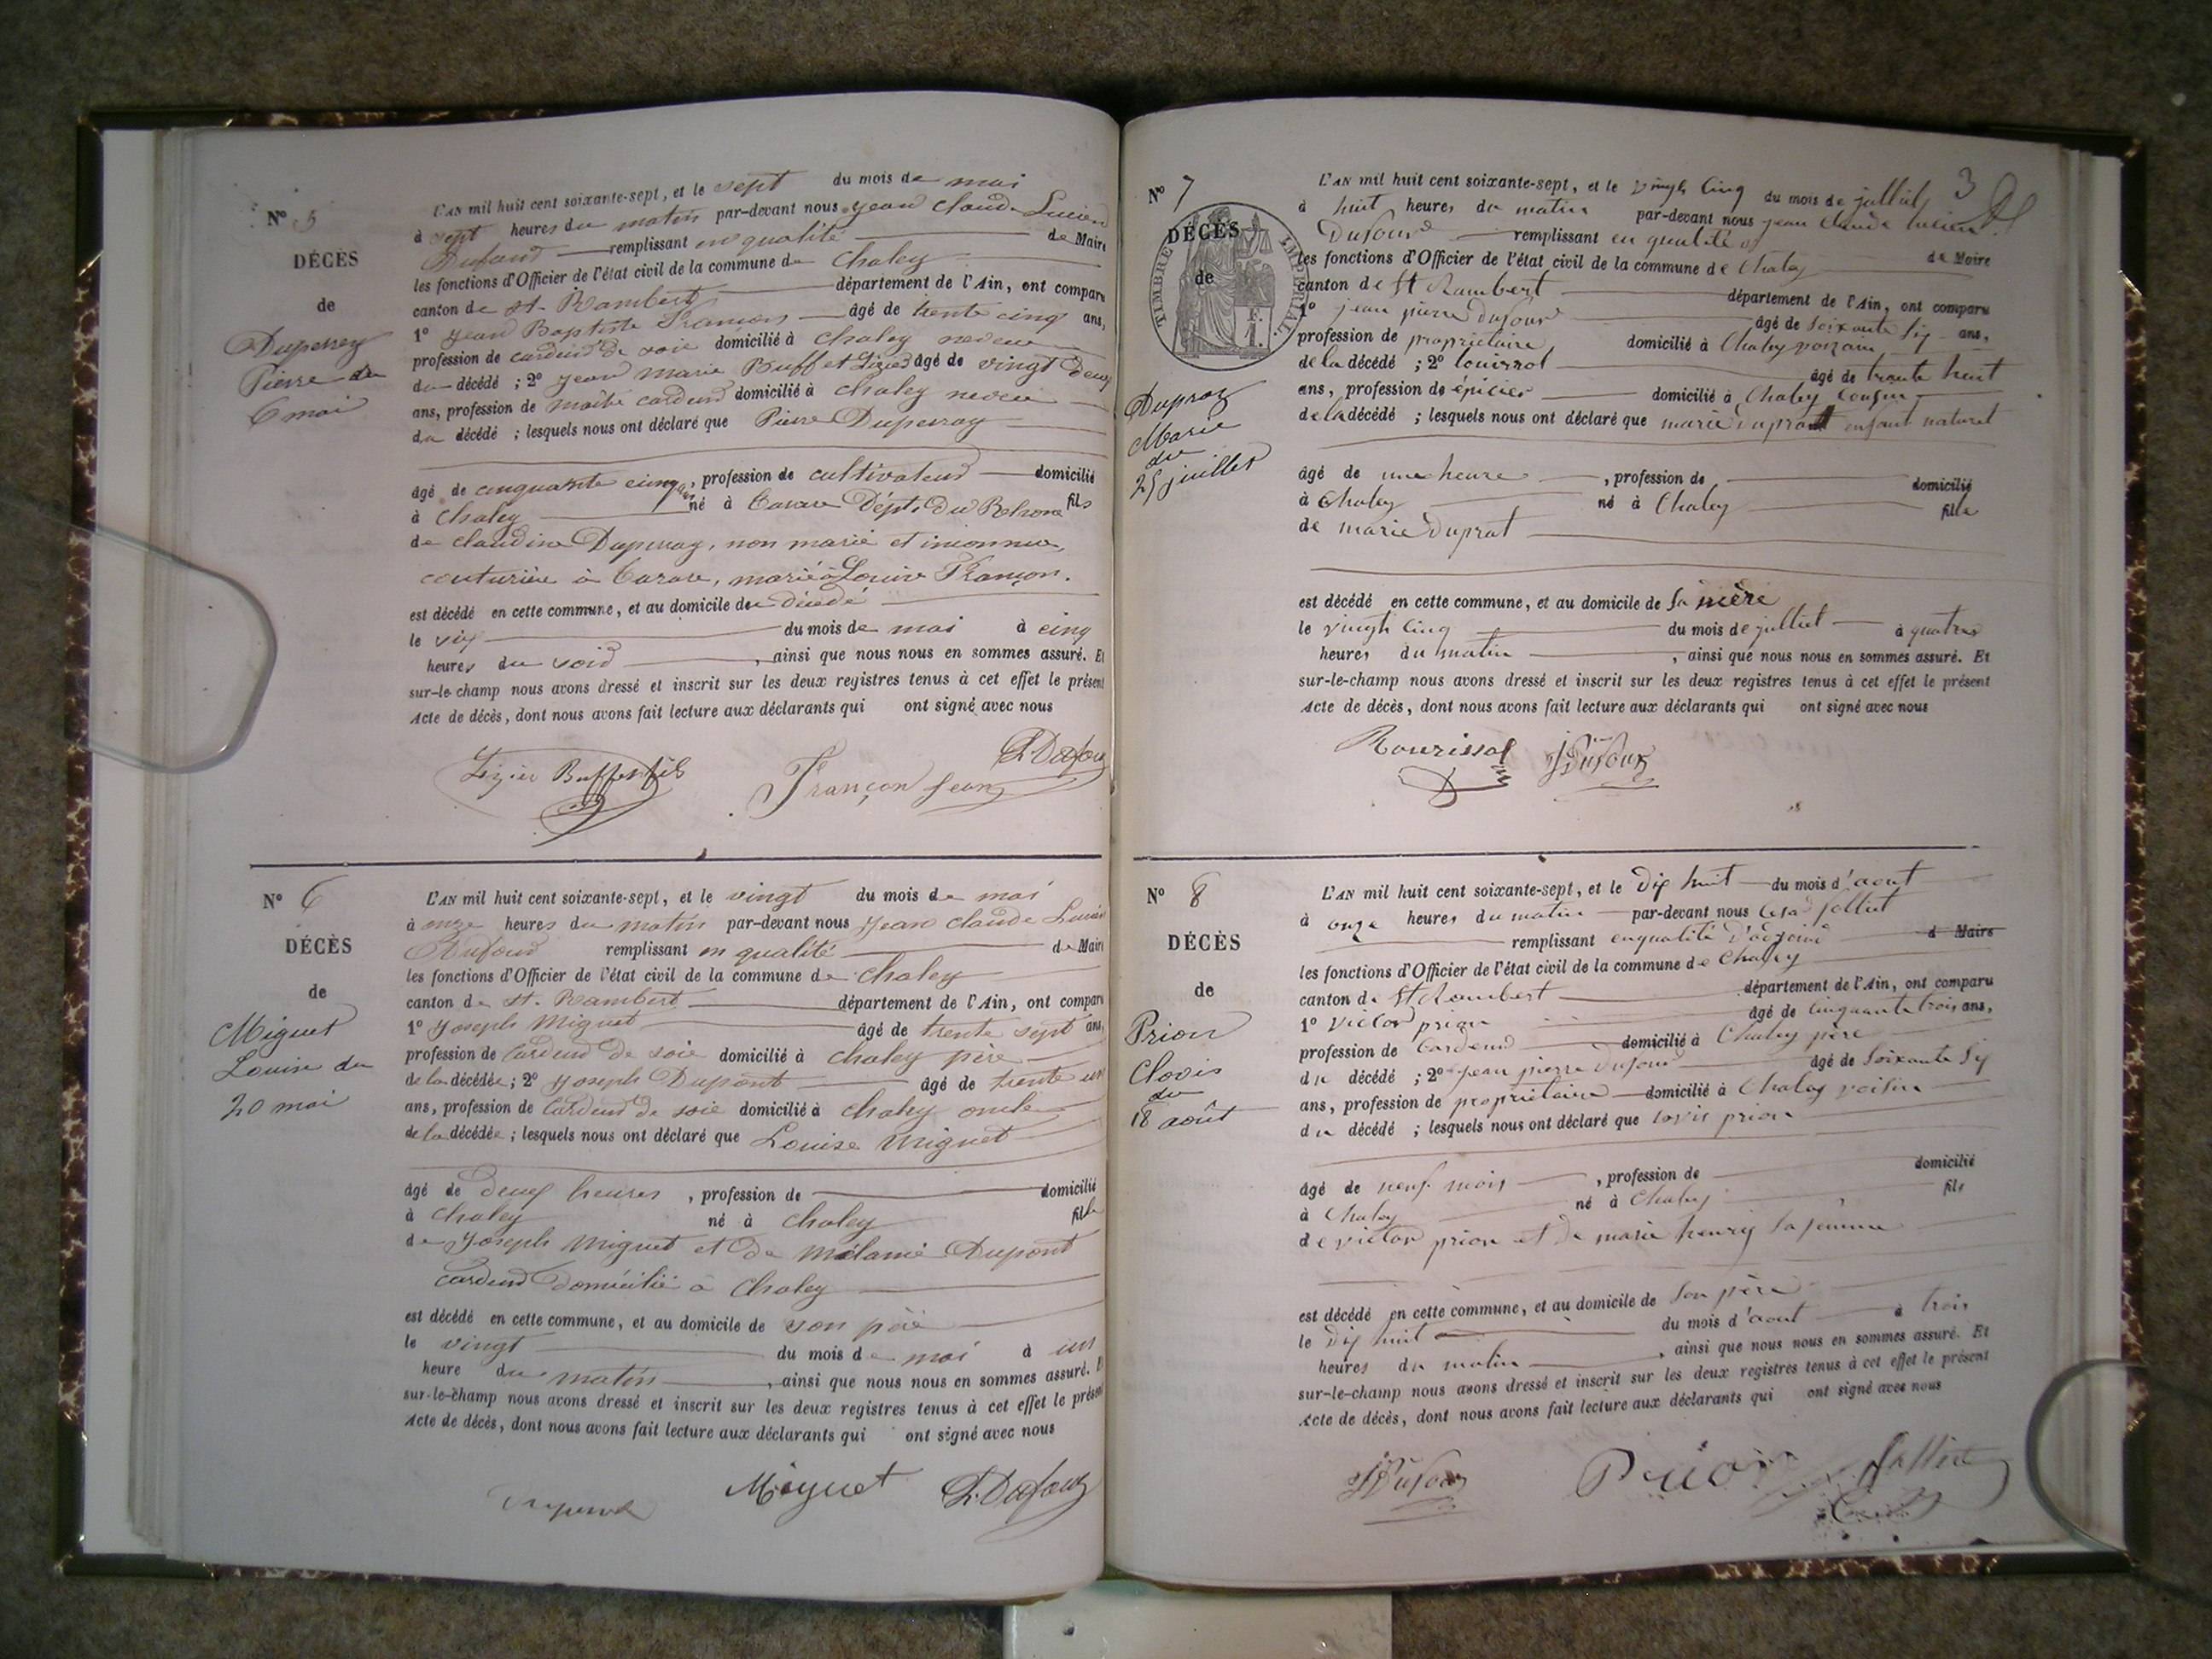 N° 5
DÉCÈS
de
Duperrey
Pierre du
6 mai
L'AN mil huit cent soixante-sept, et le sept du mois de mai
à sept heures du matin par-devant nous Jean Claude Lucien
Dufour remplissant en qualité de Maire
les fonctions d'Officier de l'état civil de la commune de Chaley
canton de St. Rambert département de l'Ain, ont comparu
1° Jean Baptiste Françon âgé de trente cinq ans,
profession de cardeur de soie domicilié à Chaley neveu
du décédé ; 2° Jean Marie Buffet Lizier âgé de vingt deux
ans, profession de maitre cardeur domicilié à Chaley neveu
du décédé ; lesquels nous ont déclaré que Pierre Duperray
âgé de cinquante cinq ans, profession de cultivateur domicilié
à Chaley né à Tarare Dépt. Du Rhone fils
de Claudine Duperray, non marié et inconnue,
couturière à Tarare, marié à Louise Françon.
est décédé en cette commune, et au domicile du décédé
le six du mois de mai à cinq
heures du soir, ainsi que nous nous en sommes assuré. Et
sur-le-champ nous avons dressé et inscrit sur les deux registres tenus à cet effet le présent
Acte de décès, dont nous avons fait lecture aux déclarants qui ont signé avec nous
Lizier Buffet fils Françon Jean L. Dufour
N° 6
DÉCÈS
de
Miguet
Louise du
20 mai
L'AN mil huit cent soixante-sept, et le vingt du mois de mai
à onze heures du matin par-devant nous Jean Claude Lucien
Dufour remplissant en qualité de Maire
les fonctions d'Officier de l'état civil de la commune de Chaley
canton de St. Rambert département de l'Ain, ont comparu
1° Joseph Miguet âgé de trente sept ans,
profession de Cardeur de soie domicilié à Chaley père
de la décédée ; 2° Joseph Dupont âgé de trente un
ans, profession de Cardeur de soie domicilié à Chaley oncle
de la décédée ; lesquels nous ont déclaré que Louise Miguet
âgé de deux heures, profession de domicilié
à Chaley né à Chaley fille
de Joseph Miguet et de Mélanie Dupont
cardeur domicilié à Chaley
est décédé en cette commune, et au domicile de son père
le vingt du mois de mai à un
heure du matin, ainsi que nous nous en sommes assuré. Et
sur-le-champ nous avons dressé et inscrit sur les deux registres tenus à cet effet le présent
Acte de décès, dont nous avons fait lecture aux déclarants qui ont signé avec nous
Dupont Miguet L. Dufour
3
N° 7
DÉCÈS
de
TIMBRE IMPÉRIAL
F.
1.
Duprat
Marie
du
25 juillet
L'AN mil huit cent soixante-sept, et le vingt cinq du mois de julliet
à huit heures du matin par-devant nous jean claude lucien
Dufour remplissant en qualité de Maire
les fonctions d'Officier de l'état civil de la commune de Chaley
canton de St Rambert département de l'Ain, ont comparu
1° jean pierre dufour âgé de soixante six ans,
profession de propriétaire domicilié à Chaley voizain
de la décédé ; 2° âgé de trante huit
ans, profession de épicier domicilié à Chaley cousin
de la décédé ; lesquels nous ont déclaré que marie duprat enfant naturel
âgé de une heure, profession de domicilié
à Chaley né à Chaley fille
de marie duprat
est décédé en cette commune, et au domicile de sa mère
le vingt cinq du mois de julliet à quatres
heures du matin, ainsi que nous nous en sommes assuré. Et
sur-le-champ nous avons dressé et inscrit sur les deux registres tenus à cet effet le présent
Acte de décès, dont nous avons fait lecture aux déclarants qui ont signé avec nous
Rourissol JPDufour
N° 8
DÉCÈS
de
Prion
Clovis
du
18 août
L'AN mil huit cent soixante-sept, et le dix huit du mois d'aout
à onze heures du matin par-devant nous César jolliet
remplissant en qualité d'adjoint d Maire
les fonctions d'Officier de l'état civil de la commune de Chaley
canton de St Rambert département de l'Ain, ont comparu
1° victor prion âgé de cinquante trois ans,
profession de Cardeur domicilié à Chaley père
du décédé ; 2° jean pierre dufour âgé de soixante six
ans, profession de propriétaire domicilié à Chaley voisin
du décédé ; lesquels nous ont déclaré que lovis prion
âgé de neuf mois, profession de domicilié
à Chaley né à Chaley fils
de victor prion et de marie henry sa femme
est décédé en cette commune, et au domicile de son père
le dix huit du mois d'aout à trois
heures du matin, ainsi que nous nous en sommes assuré. Et
sur-le-champ nous avons dressé et inscrit sur les deux registres tenus à cet effet le présent
Acte de décès, dont nous avons fait lecture aux déclarants qui ont signé avec nous
JPDufour Prion Jolliet